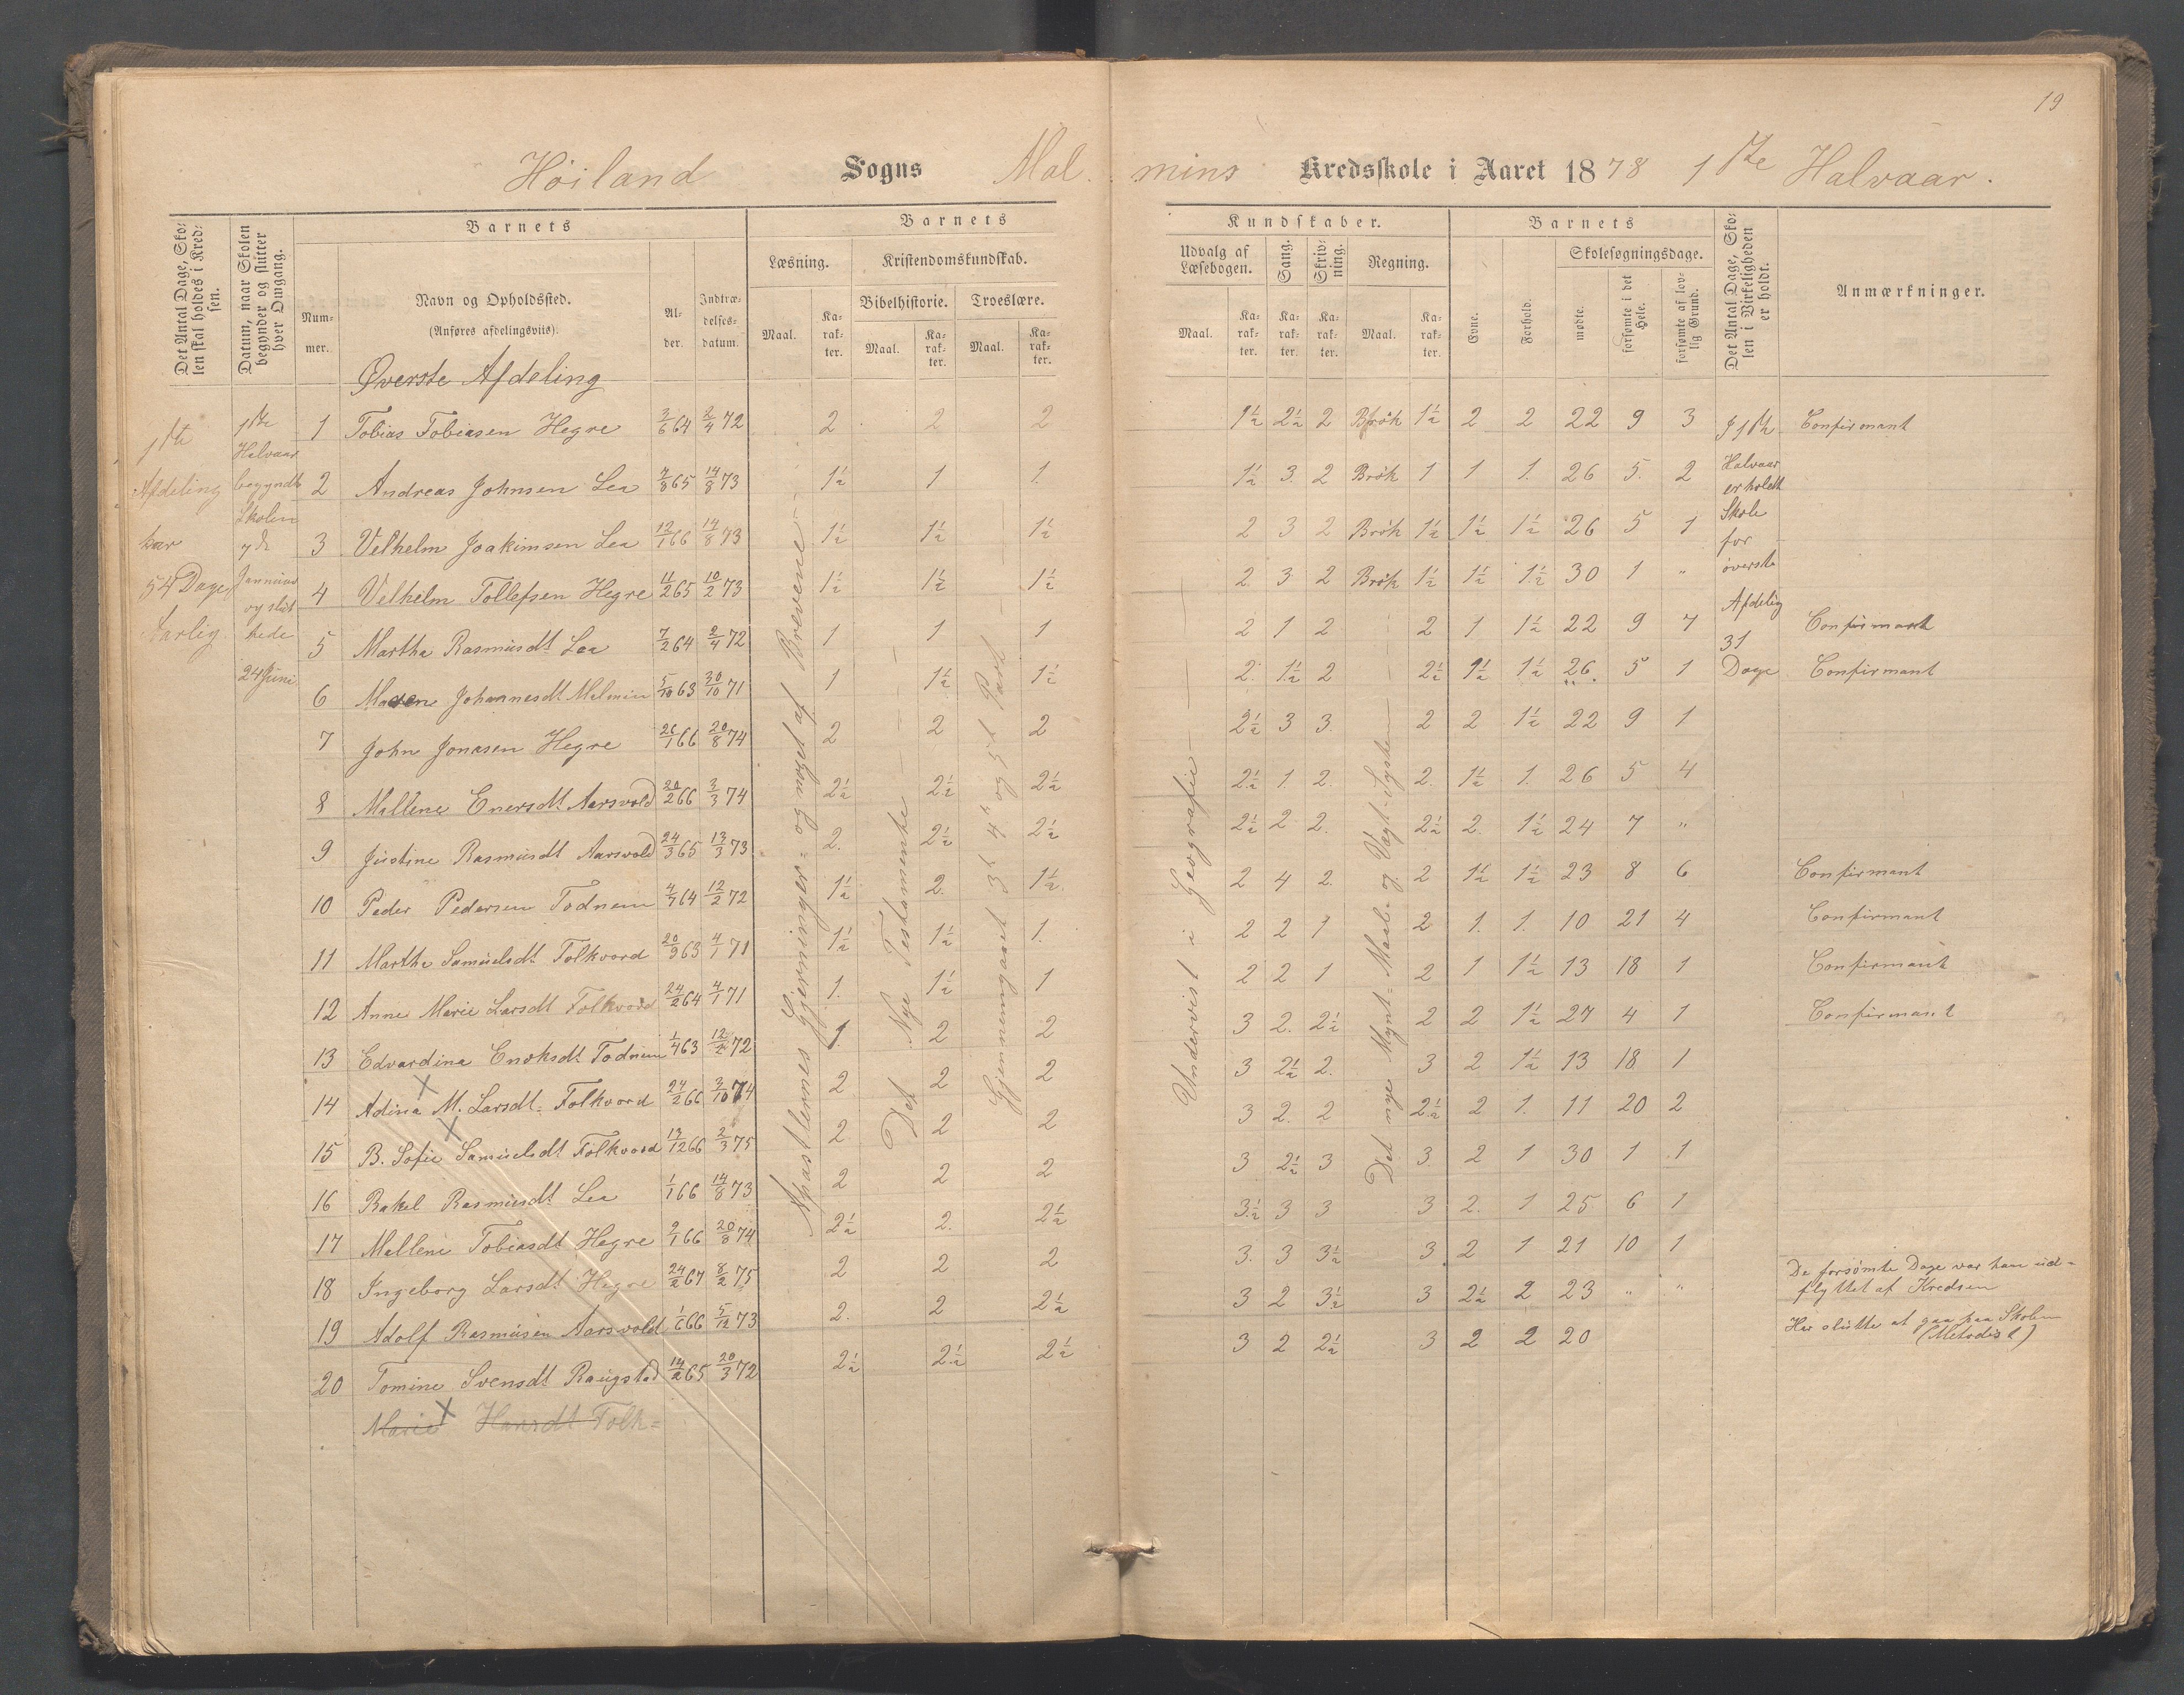 19
Höiland Sogns Mal mins Kredsskole i Aaret 1878 1ste Halvaar.
Det Antal Dage, Skolen skal holdes i Kredsen.
Datum, naar Skolen begynder og slutter hver Omgang.
Barnets
Num-mer.
Navn og Opholdssted.
(Anføres afdelingsviis).
Al-der.
Indtræ-delses-datum.
Barnets
Læsning.
Kristendomskundskab.
Bibelhistorie. Troeslære.
Maal. Ka-rak-ter. Maal. Ka-rak-ter. Maal. Ka-rak-ter.
Kundskaber.
Udvalg af Læsebogen. Sang. Skriv-ning. Regning.
Maal. Ka-rak-ter. Ka-rak-ter. Ka-rak-ter. Maal. Ka-rak-ter.
Barnets
Evne. Forhold.
Skolesøgningsdage.
mødte. forsømte i det Hele. forsømte af lov-lig Grund.
Det Antal Dage, Sko-len i Virkeligheden er holdt.
Anmærkninger.
Øverste Afdeling
1ste
Afdeling
har
54 Dage
Aarlig.
1ste
Halvaar
begyndte
Skolen
7de
Januar
og slut
tede
24 Juni
1 Tobias Tobiasen Hegre 3/6 64 2/4 72 2 2 2 1½ 2½ 2 Brøk 1½ 2 2 22 9 3 Confirmant
2 Andreas Johnsen Lea 4/8 65 14/8 73 1½ 1 1. 1½ 3. 2 Brøk 1 1 1. 26 5. 2
3 Velhelm Joakimsen Lea 12/1 66 14/8 73 1½ 1½ 1½ 2 3 2 Brøk 1½ 1½ 1½ 26 5 1
4 Velhelm Tollefsen Hegre 11/2 65 10/2 73 1½ 1½ 1½ 2. 3 2 Brøk 1½ 1½ 1½ 30 1 "
5 Martha Rasmusdt Lea 7/2 64 2/4 72 1 1 1 2 1 2 2 1 1½ 22 9 7 Confirmant
6 Maren Johannesdt Malmin 5/10 63 30/10 71 1 1½ 1½ 2. 1½ 2 2½ 1½ 1½ 26. 5 1 Confirmant
7 John Jonasen Hegre 26/1 66 20/8 74 2 2 2 2½ 3 3. 2 2 1½ 22 9 1
8 Mallene Enersdt Aarsvold 20/2 66 3/3 74 2½ 2½ 2½ 2½ 1 2. 2. 1½ 1. 26 5 4
9 Justine Rasmusdt Aarsvold 24/3 65 13/3 73 2. 2½ 2½ 2½ 2 2. 2½ 2. 1½ 24 7 "
10 Peder Pedersen Todnem 4/7 64 12/2 72 1½ 2. 1½. 2 4 2. 2 1½ 1½ 23 8 6 Confirmant
11 Martha Samuelsdt Folkvord 20/9 63 4/1 71 1½ 1½ 1. 2 2 1 2 1. 1. 10 21 4 Confirmant
12 Anne Marie Larsdt Folkvord 24/2 64 4/1 71 1. 1½ 1 2 2 1 2 1 1½ 13 18 1 Confirmant
13 Edvardina Enoksdt Todnem 1/4 63 12/2 72 1. 2 2 3 2. 2½ 2 2 1½ 27 4 1 Confirmant
14 Adina M. Larsdt. Folkvord 24/2 66 3/10 74 2 2 2 3 2½ 2. 3 2 1½ 13 18 1
15 B. Sofie Samuelsdt Folkvord 13/12 66 2/3 75 2 2 2 3 2. 2 2½ 2 1. 11 20 2
16 Rakel Rasmusdt Lea 1/1 66 14/8 73 2 2 2 3 2½ 3 3. 2 1 30 1 1
17 Mallene Tobiasdt Hegre 2/1 66 20/8 74 2½ 2. 2½ 3½ 3 3 3 2. 1 25 6 1
18 Ingeborg Larsdt Hegre 24/2 67 8/2 75 2 2 2 3. 3 3½ 3 2 1 21 10 1
19 Adolf Rasmusen Aarsvold 1/6 66 5/12 73 2. 2 2½ 3 2 3½ 3 2½ 2 23 " " De forsømte Dage var han ud-
flyttet af Kredsen
20 Tomine Svensdt Raugstad 14/2 65 20/3 72 2½ 2½ 2½ 3 2 2½ 3 2 2 20 Her slutte at gaa paa Skolen
(Metodist)
Marie Hansdt Folk=
Apostlernes Gjerninger og noget af Brevene
Det Nye Testamente
Gjennemgaaet 3d 4d og 5t Part
Undervist i Geografie
Det nye Mynt= Maal= og Vægt-System
I 1ste
Halvaar
er holdt
Skole
for
øverste
Afdelig
31
Dage